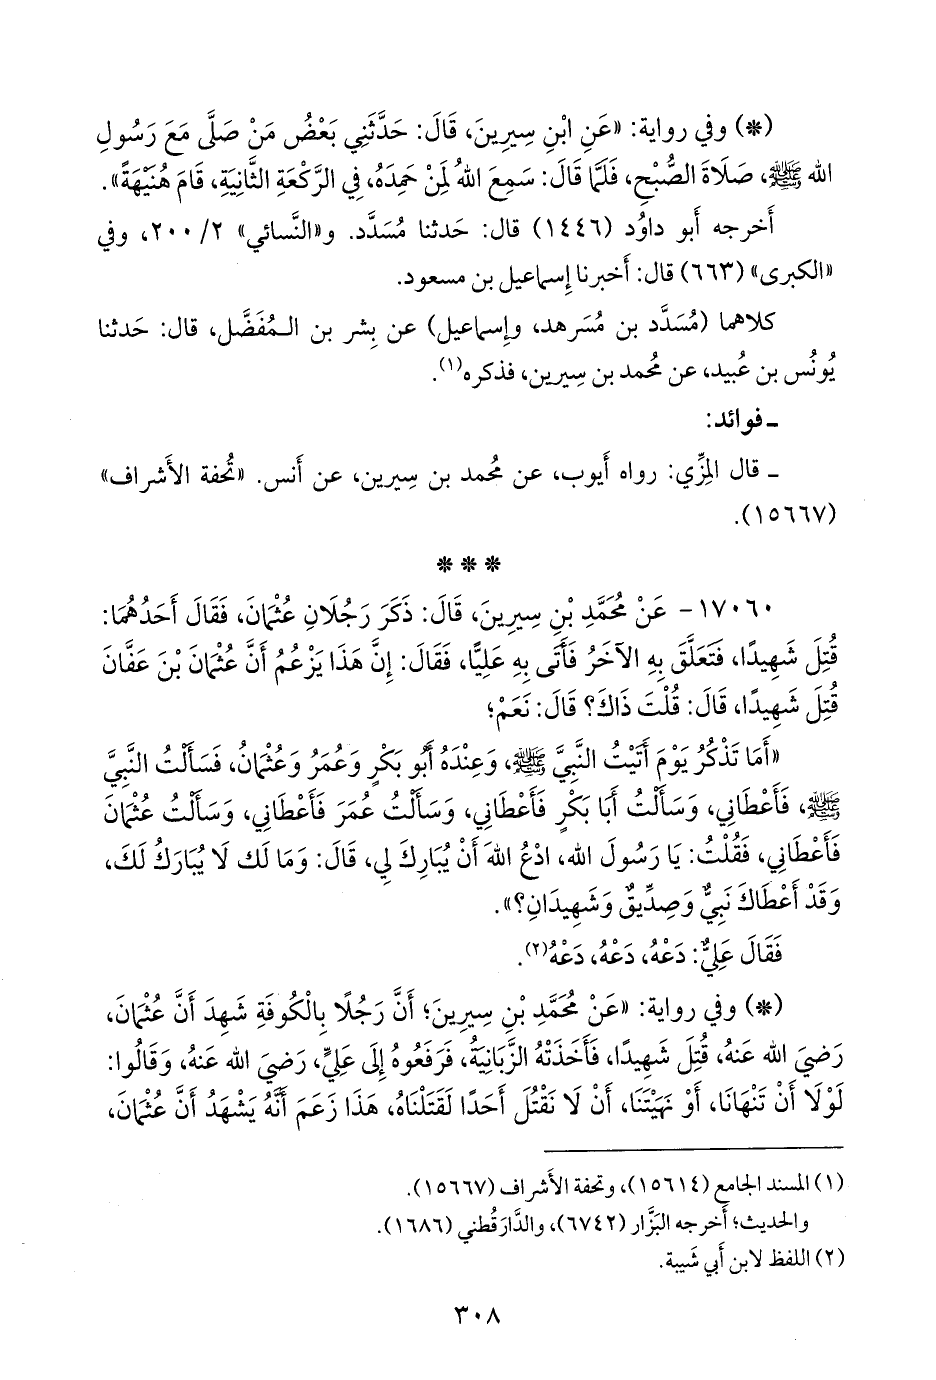 (*) وفي رواية: «عَنِ ابْنِ سِيرِينَ، قَالَ: حَدَّثَنِي بَعْضُ مَنْ صَلَّى مَعَ رَسُولِ
الله ﷺ، صَلَاةَ الصُّبْحِ، فَلَمَّا قَالَ: سَمِعَ اللهُ لِمَنْ حَمِدَهُ، فِي الرَّكْعَةِ الثَّانِيَةِ، قَامَ هُنَيْهَةً».
أخرجه أبو داوُد (١٤٤٦) قال: حَدثنا مُسَدَّد. و«النَّسائي» ٢/ ٢٠٠، وفي
«الكبرى» (٦٦٣) قال: أَخبرنا إِسماعيل بن مسعود.
كلاهما (مُسَدَّد بن مُسَرهد، وإِسماعيل) عن بِشر بن الـمُفَضَّل، قال: حَدثنا
يُونُس بن عُبيد، عن مُحمد بن سِيرين، فذكره(١).
ـ فوائد:
ـ قال المِزِّي: رواه أَيوب، عن مُحمد بن سِيرين، عن أَنس. «تُحفة الأَشراف»
(١٥٦٦٧).
* * *
١٧٠٦٠ - عَنْ مُحَمَّدِ بْنِ سِيرِينَ، قَالَ: ذَكَرَ رَجُلَانِ عُثْمَانَ، فَقَالَ أَحَدُهُمَا:
قُتِلَ شَهِيدًا، فَتَعَلَّقَ بِهِ الآخَرُ فَأَتَى بِهِ عَلِيًّا، فَقَالَ: إِنَّ هَذَا يَزْعُمُ أَنَّ عُثْمَانَ بْنَ عَفَّانَ
قُتِلَ شَهِيدًا، قَالَ: قُلْتَ ذَاكَ؟ قَالَ: نَعَمْ؛
«أَمَا تَذْكُرُ يَوْمَ أَتَيْتُ النَّبِيَّ ﷺ، وَعِنْدَهُ أَبُو بَكْرٍ وَعُمَرُ وَعُثْمَانُ، فَسَأَلْتُ النَّبِيَّ
ﷺ، فَأَعْطَانِي، وَسَأَلْتُ أَبَا بَكْرٍ فَأَعْطَانِي، وَسَأَلْتُ عُمَرَ فَأَعْطَانِي، وَسَأَلْتُ عُثْمَانَ
فَأَعْطَانِي، فَقُلْتُ: يَا رَسُولَ الله، ادْعُ اللهَ أَنْ يُبَارِكَ لِي، قَالَ: وَمَا لَك لَا يُبَارَكُ لَكَ،
وَقَدْ أَعْطَاكَ نَبِيٌّ وَصِدِّيقٌ وَشَهِيدَانِ؟».
فَقَالَ عَلِيٌّ: دَعْهُ، دَعْهُ، دَعْهُ(٢).
(*) وفي رواية: «عَنْ مُحَمَّدِ بْنِ سِيرِينَ؛ أَنَّ رَجُلًا بِالْكُوفَةِ شَهِدَ أَنَّ عُثْمَانَ،
رَضيَ الله عَنهُ، قُتِلَ شَهِيدًا، فَأَخَذَتْهُ الزَّبَانِيَةُ، فَرَفَعُوهُ إِلَى عَلِيٍّ، رَضيَ الله عَنهُ، وَقَالُوا:
لَوْلَا أَنْ تَنْهَانَا، أَوْ نَهَيْتَنَا، أَنْ لَا نَقْتُلَ أَحَدًا لَقَتَلْنَاهُ، هَذَا زَعَمَ أَنَّهُ يَشْهَدُ أَنَّ عُثْمَانَ،
(١) المسند الجامع (١٥٦١٤)، وتحفة الأَشراف (١٥٦٦٧).
والحديث؛ أَخرجه البَزَّار (٦٧٤٢)، والدَّارَقُطني (١٦٨٦).
(٢) اللفظ لابن أَبي شَيبة.
٣٠٨